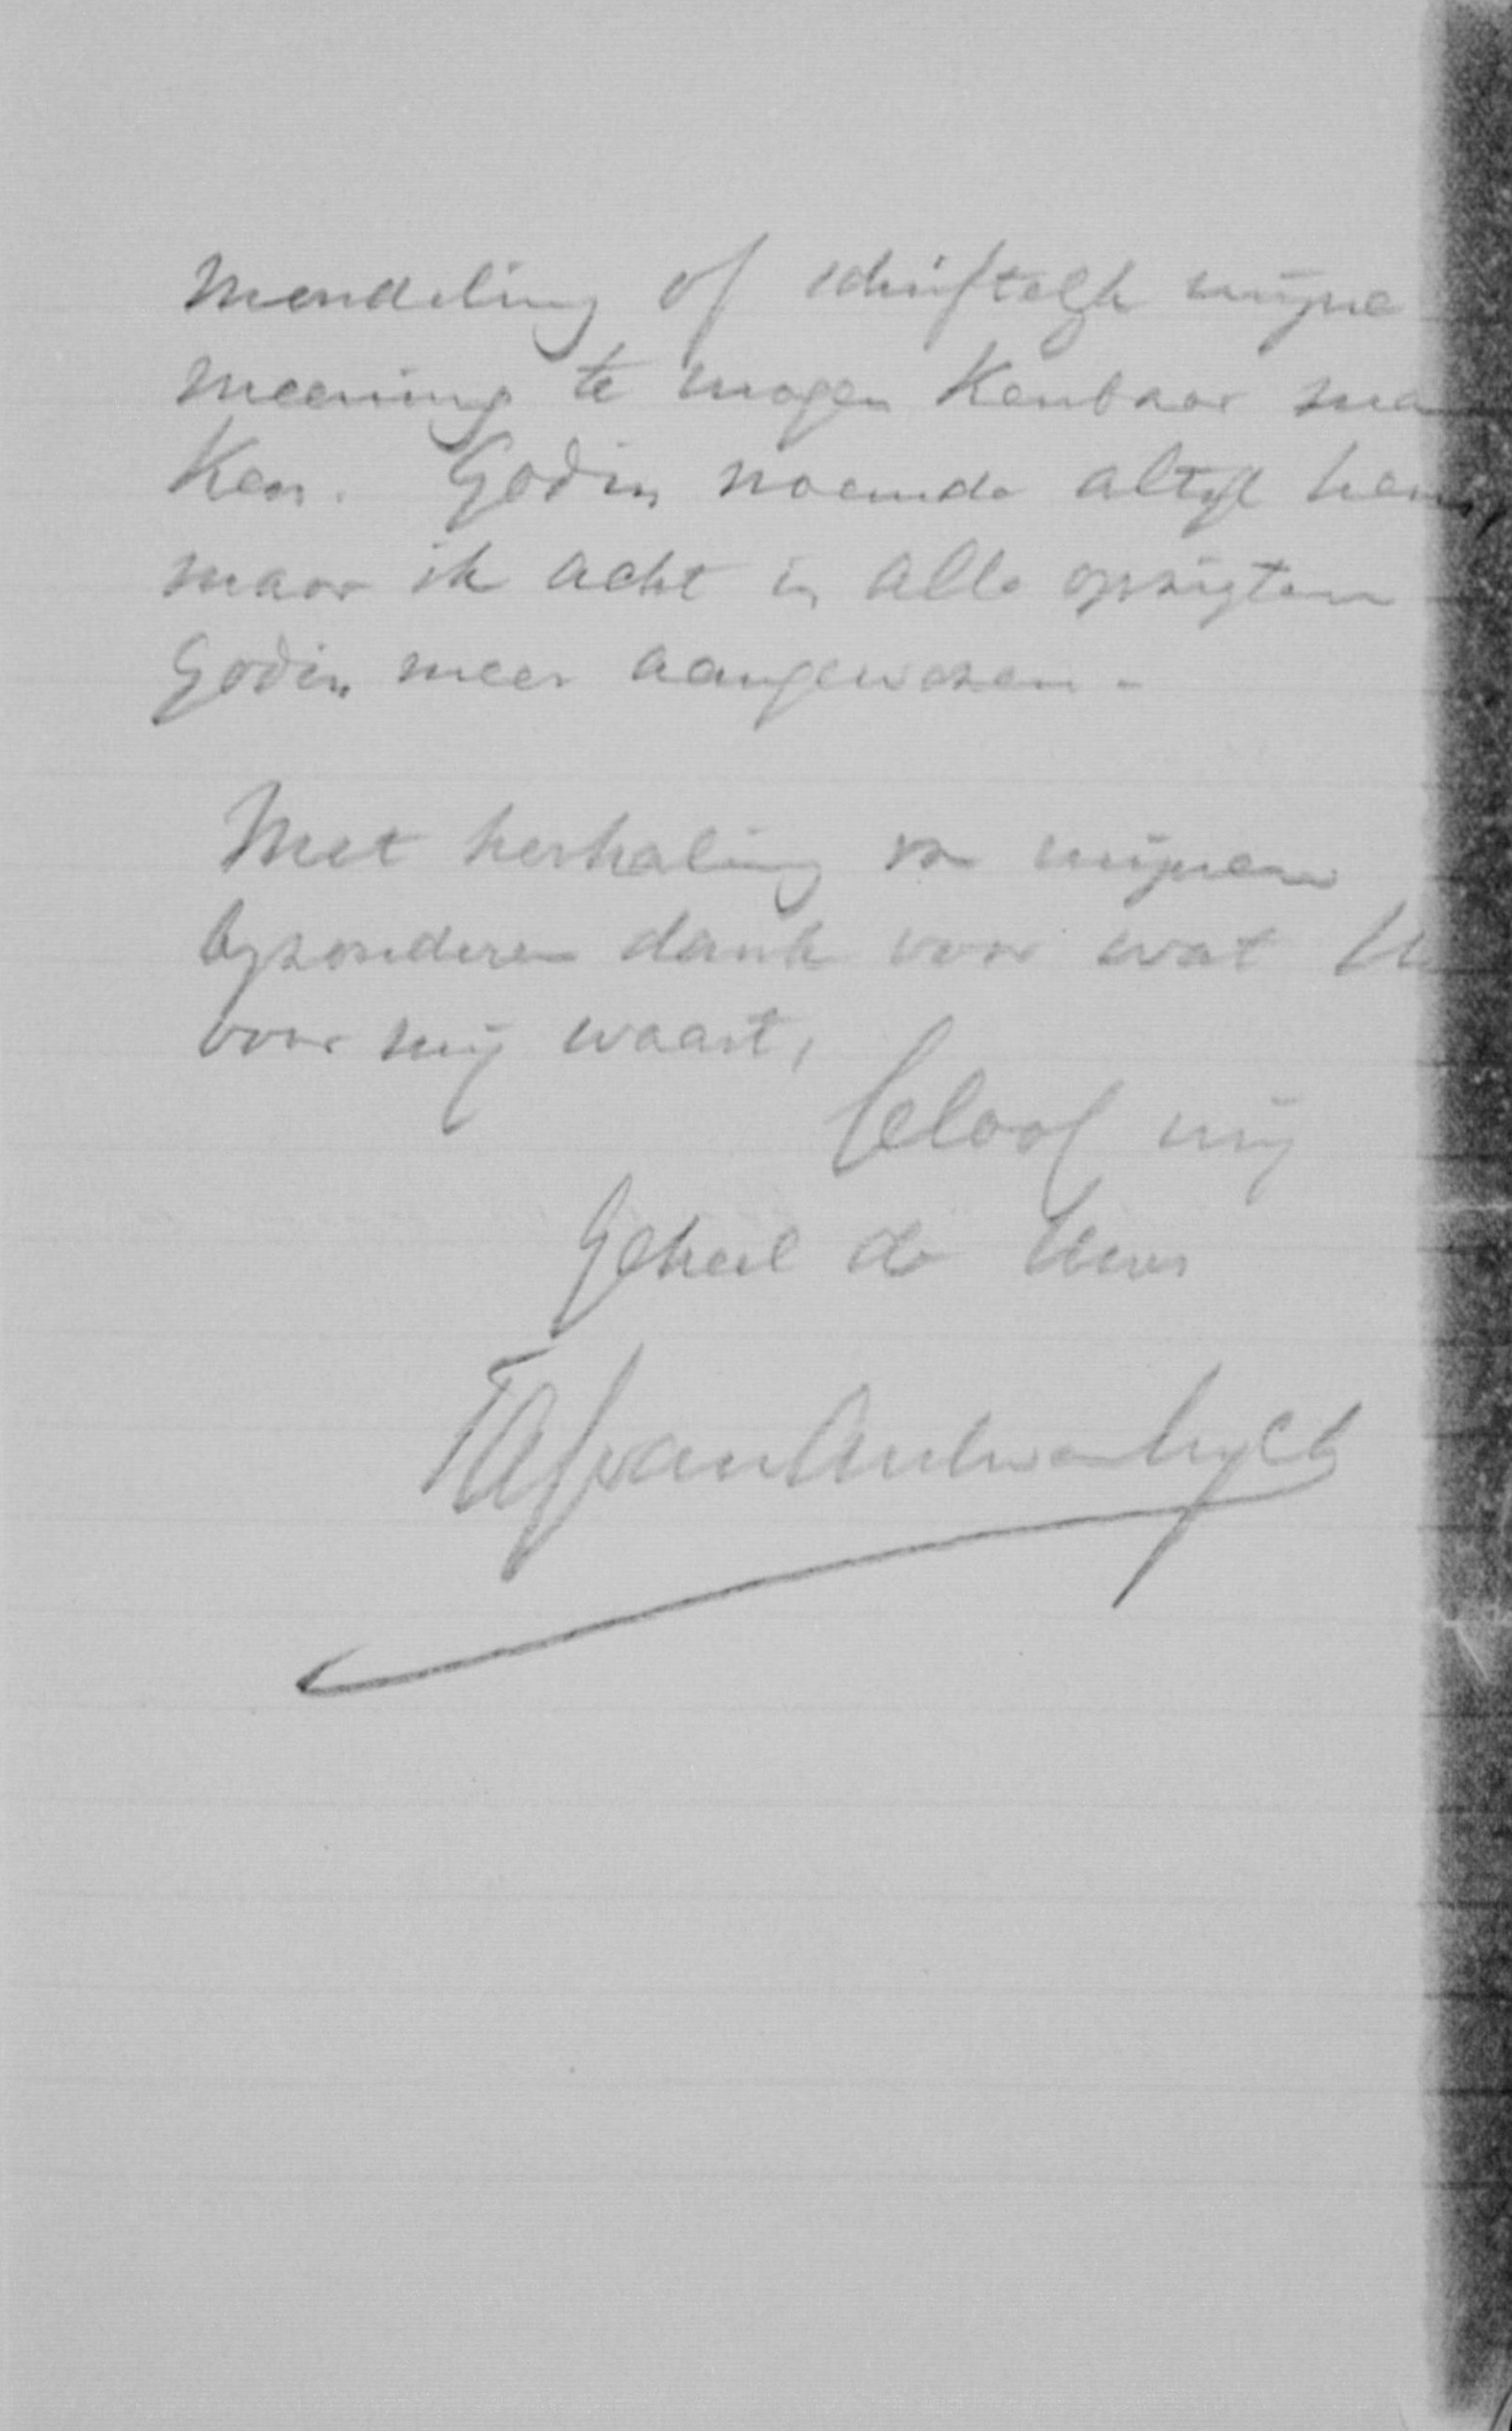 mondeling of schriftelyk mijne
meening te mogen kenbaar ma
ken. Godin noemde altyd hem,
maar ik acht in alle opzigten
Godin meer aangewezen -
Met herhaling van mijnen
byzonderen dank voor wat U
voor mij waart,
geloof mij
Geheel de Uwe